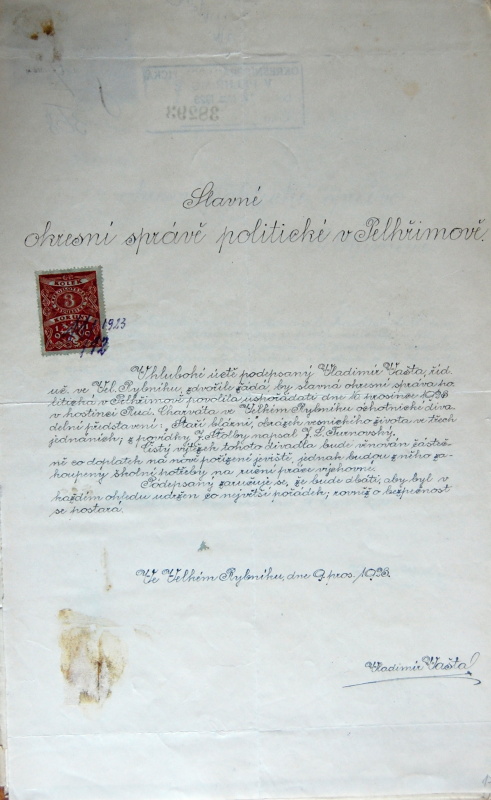 38293
Slavné
okresní správě politické v Pelhřimově.
KOLEK
3
KORUNY
1923
V hluboké úctě podepsaný Vladimír Vašta, říd.
uč. ve Vel. Rybníku, zdvořile žádá, by slavná okresní správa po-
litická v Pelhřimově povolila uspořádati dne 16. prosince 1923
v hostinci Rud. Charváta ve Velkém Rybníku ochotnické diva-
delní představení: „Staří blázni, obrázek vesnického života v třech
jednáních; z povídky J. Stolby napsal J. L. Turnovský.
Čistý výtěžek tohoto divadla bude věnován částeč-
ně co doplatek na nově pořízené jeviště, jednak budou z něho za-
koupeny školní potřeby na ruční práce výchovné.
Podepsaný zaručuje se, že bude dbáti, aby byl v
každém ohledu udržen co největší pořádek; rovněž o bezpečnost
se postará.
Ve Velkém Rybníku, dne 9. pros. 1923.
Vladimír Vašta